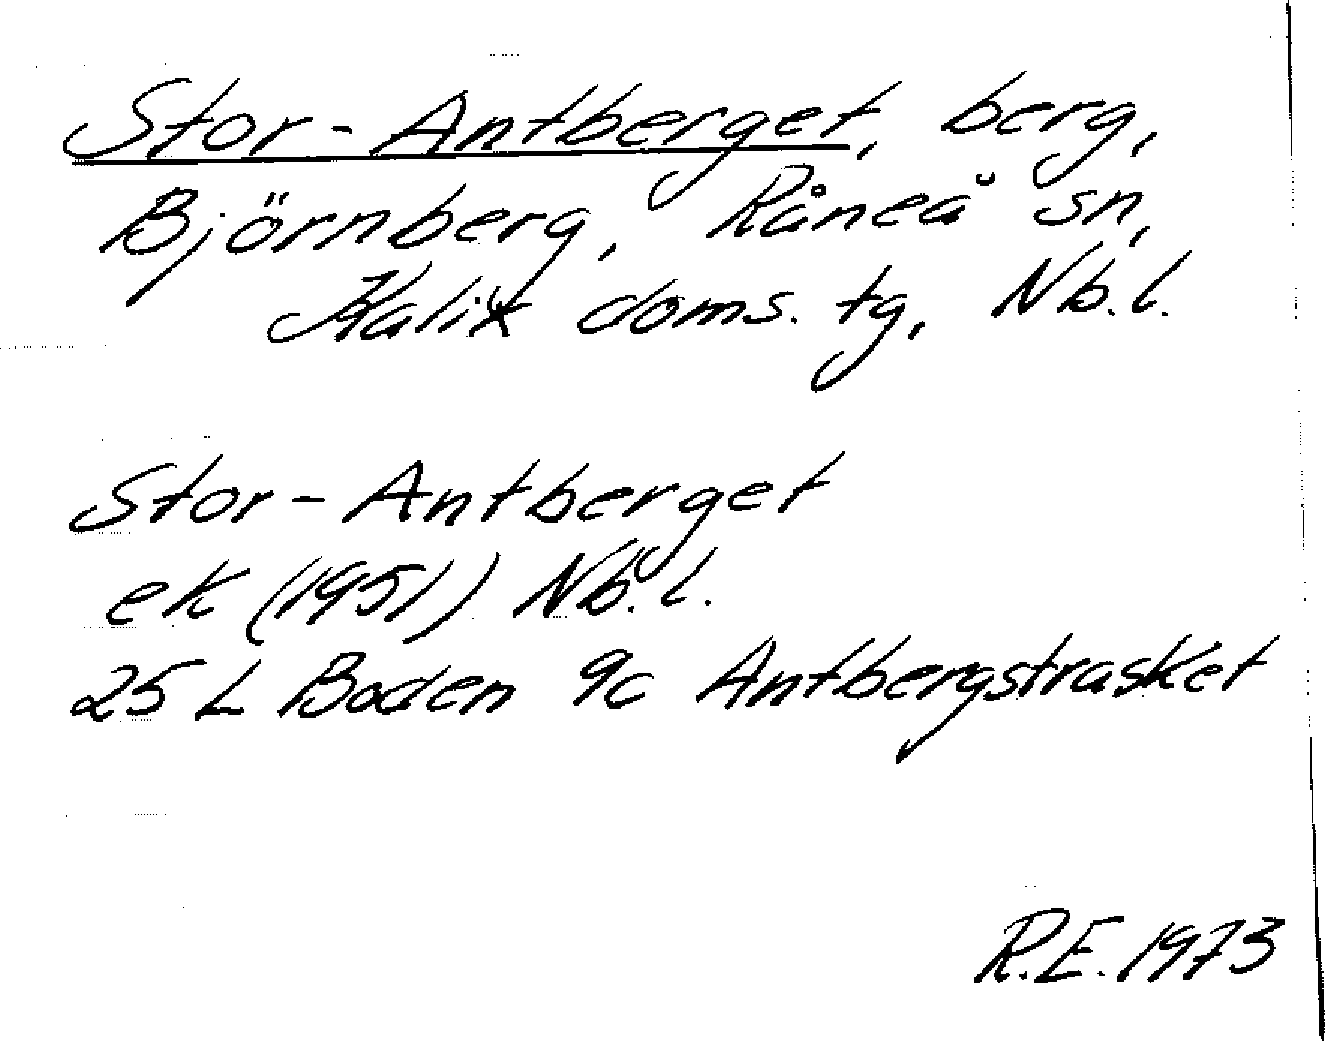 Stor-Antberget, berg,
Björnberg, Råneå sn,
Kalix doms. tg, Nb.l.
Stor-Antberget
ek (1951) Nb.l.
25 L Boden 9c Antbergstrasket
R.E. 1973